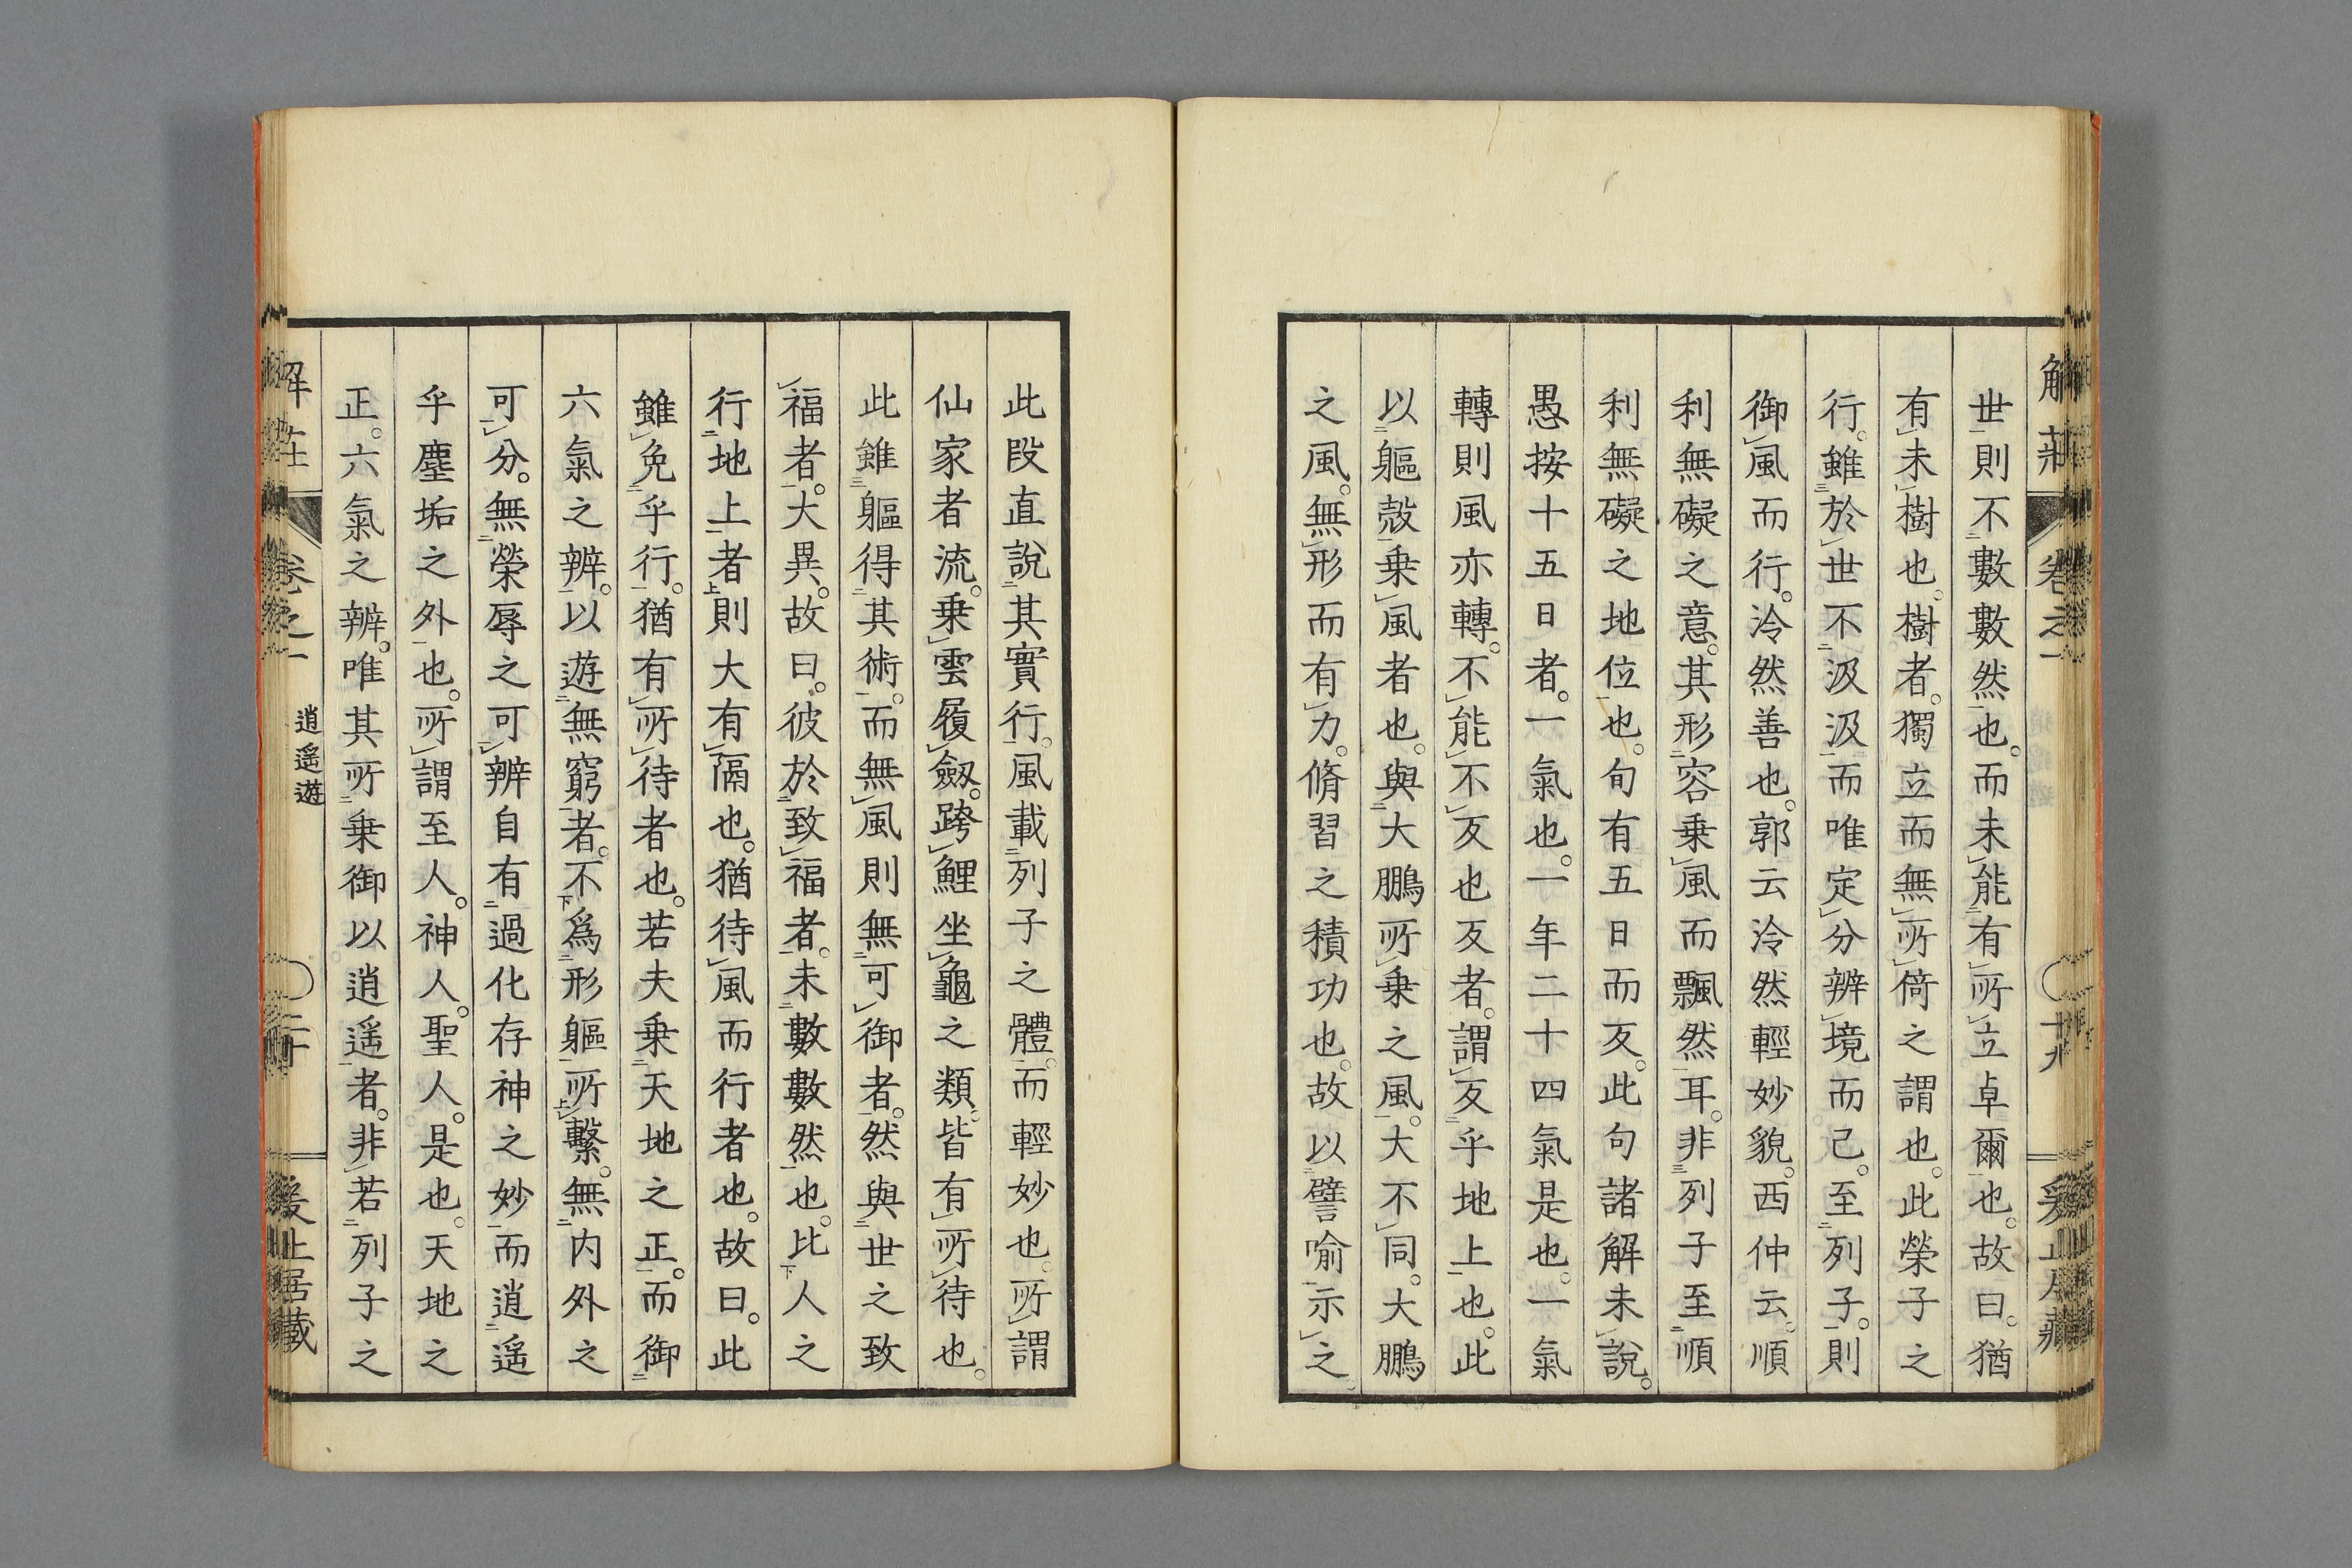 世則不數數然也。而未能有所立卓爾也。故曰。猶
有未樹也。樹者。獨立而無所倚之謂也。此榮子之
行。雖於世不汲汲而唯定分辨境而已。至列子。則
御風而行。泠然善也。郭云泠然輕妙貌。西仲云。順
利無礙之意。其形容乗風而飄然耳。非列子至順
利無礙之地位也。旬有五日而反。此句諸解未說。
愚按十五日者。一氣也。一年二十四氣是也。一氣
轉則風亦轉。不能不反也反者。謂反乎地上也。此
以軀殼乗風者也。與大鵬所乗之風。大不同。大鵬
之風。無形而有力。脩習之積功也。故以譬喻示之
此段直說其實行。風載列子之體。而輕妙也。所謂
仙家者流。乗雲履劔。跨鯉坐龜之類。皆有所待也。
此雖軀得其術。而無風則無可御者。然與世之致
福者。大異。故曰。彼於致福者。未數數然也。比人之
行地上者則大有隔也。猶待風而行者也。故曰。此
雖免乎行。猶有所待者也。若夫乗天地之正。而御
六氣之辨。以遊無窮者。不爲形軀所繫。無内外之
可分。無榮辱之可辨自有過化存神之妙而逍遥
乎塵垢之外也。所謂至人。神人。聖人。是也。天地之
正。六氣之辨。唯其所乗御以逍遥者。非若列子之
逍遥遊